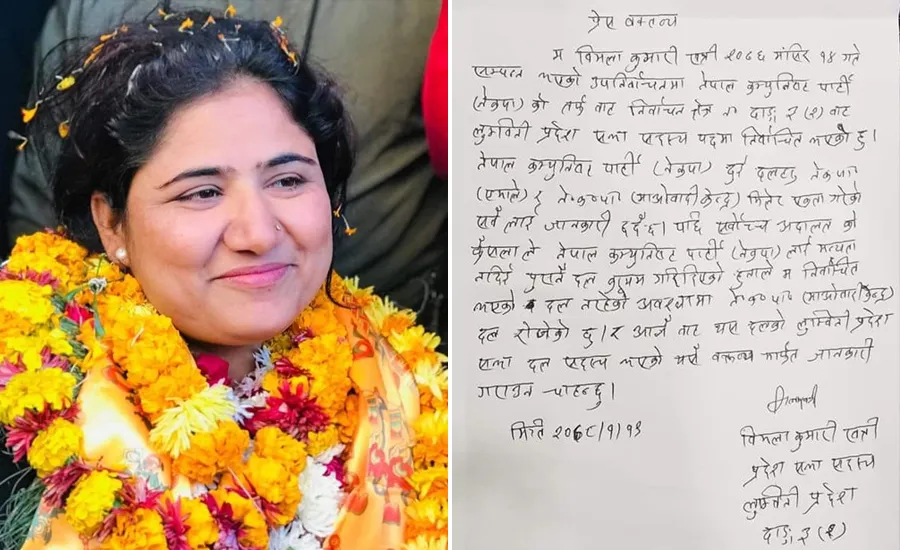 प्रेस वक्तव्य
म विमला कुमारी खत्री २०७६ मंसिर १४ गते
सम्पन्न भएको उपनिर्वाचनमा नेपाल कम्युनिष्ट पार्टी
(नेकपा) को तर्फ बाट निर्वाचन क्षेत्र नं दाङ ३ (२) बाट
लुम्बिनी प्रदेश सभा सदस्य पदमा निर्वाचित भएको हु।
नेपाल कम्युनिष्ट पार्टी (नेकपा) दुई दलहरु ने.क.पा
(एमाले) र ने.क.पा (माओवादी केन्द्र) मिलेर एकता गरेको
सबै लाई जानकारी छदैछ। पछि सर्वोच्च अदालत को
फैसला ले नेपाल कम्युनिष्ट पार्टी (नेकपा) लाई मान्यता
नदिई पुरानै दल कायम गरिदिएको हुनाले म निर्वाचित
भएको दल नरहेको अवस्थामा ने.क.पा (माओवादी केन्द्र)
दल रोजेको हु। र आजै बाट यस दलको लुम्बिनी प्रदेश
सभा दल सदस्य भएको यसै वक्तव्य मार्फत जानकारी
गराउन चाहन्छु।
मिति २०७८/१/१९
विमला कुमारी खत्री
प्रदेश सभा सदस्य
लुम्बिनी प्रदेश
दाङ ३ (२)